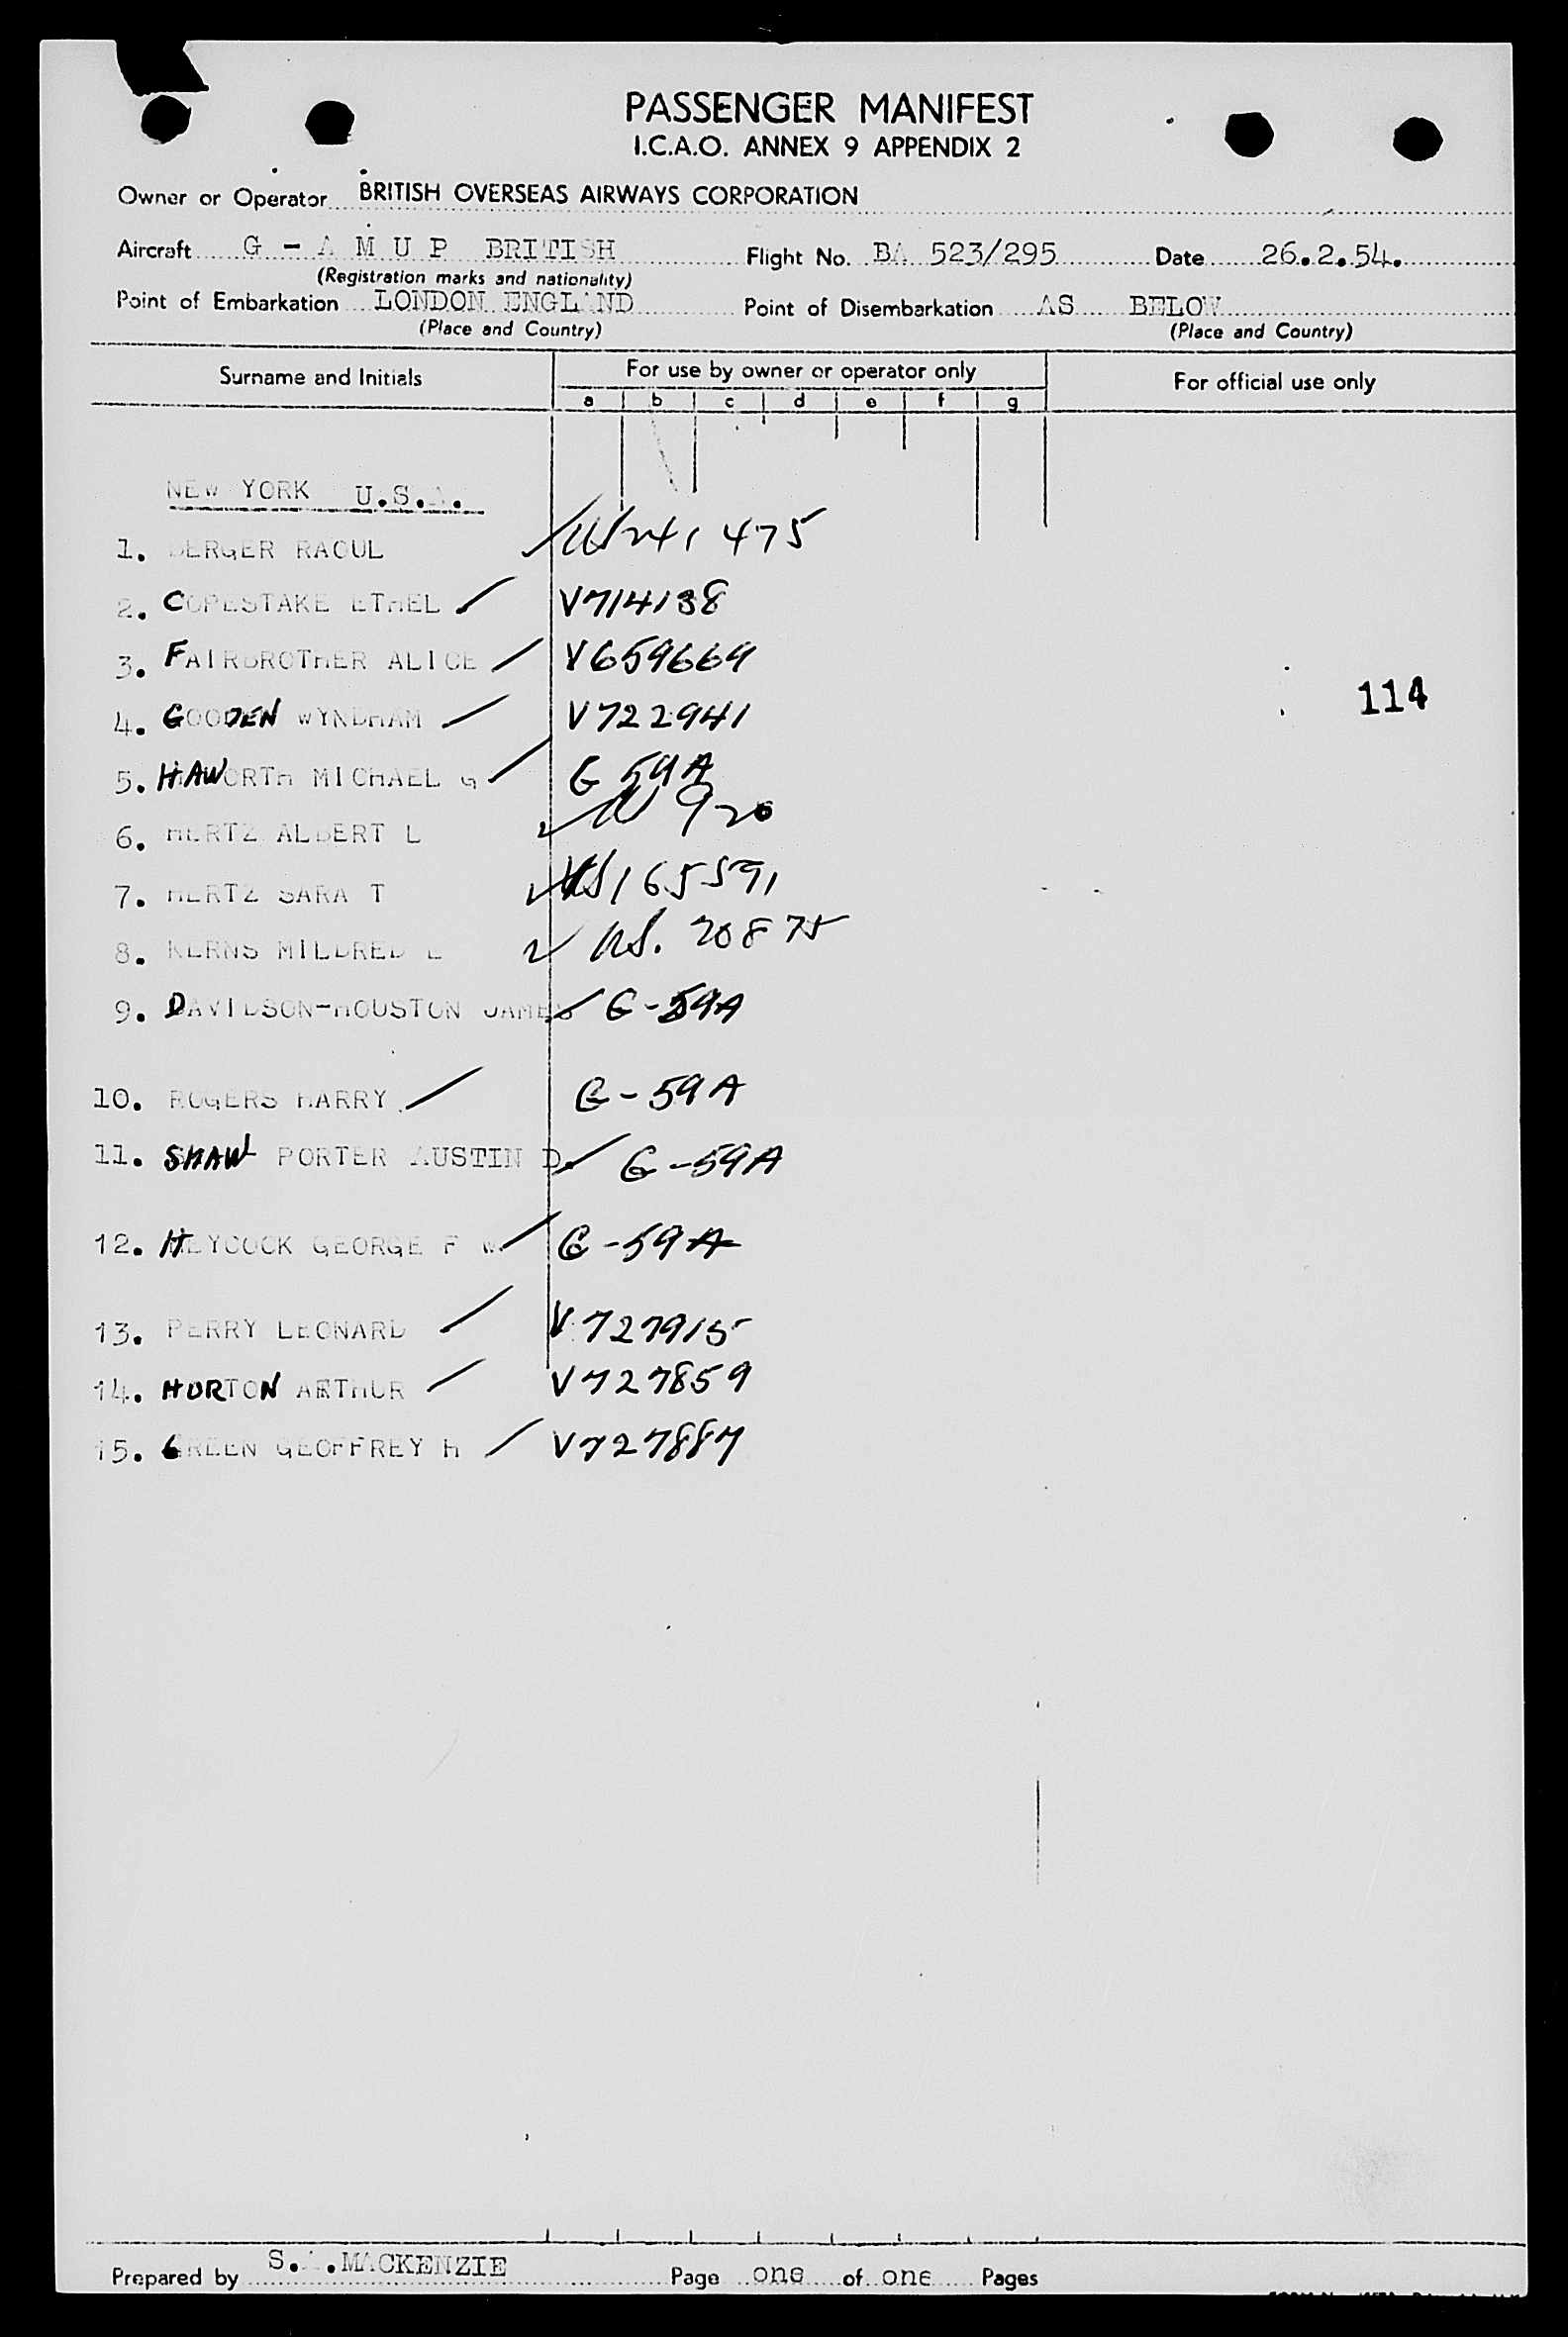 PASSENGER MANIFEST
I.C.A.O. ANNEX 9 APPENDIX 2
Owner or Operator BRITISH OVERSEAS AIRWAYS CORPORATION
Aircraft G - A M U P BRITISH Flight No. BA 523/295 Date 26.2.54.
(Registration marks and nationality)
Point of Embarkation LONDON ENGLAND Point of Disembarkation AS BELOW
(Place and Country) (Place and Country)
Surname and Initials For use by owner or operator only For official use only
a b c d e f g
NEW YORK U.S.A.
1. BERGER RAOUL 475
2. COPESTAKE ETHEL V714138
3. FAIRBROTHER ALICE V659669
114
4. GOODEN WYNDHAM V722941
5. HAWORTH MICHAEL G G 59A
6. HERTZ ALBERT L 920
7. HERTZ SARA T US165591
8. KERNS MILDRED E US. 20875
9. DAVIDSON-HOUSTON JAMES G-59A
10. ROGERS HARRY G-59A
11. SHAW PORTER AUSTIN D. G-59A
12. HEYCOCK GEORGE F W. G-59A
13. PERRY LEONARD V727915
14. HORTON ARTHUR V727859
15. GREEN GEOFFREY H V727887
Prepared by S.A.MACKENZIE Page one of one Pages